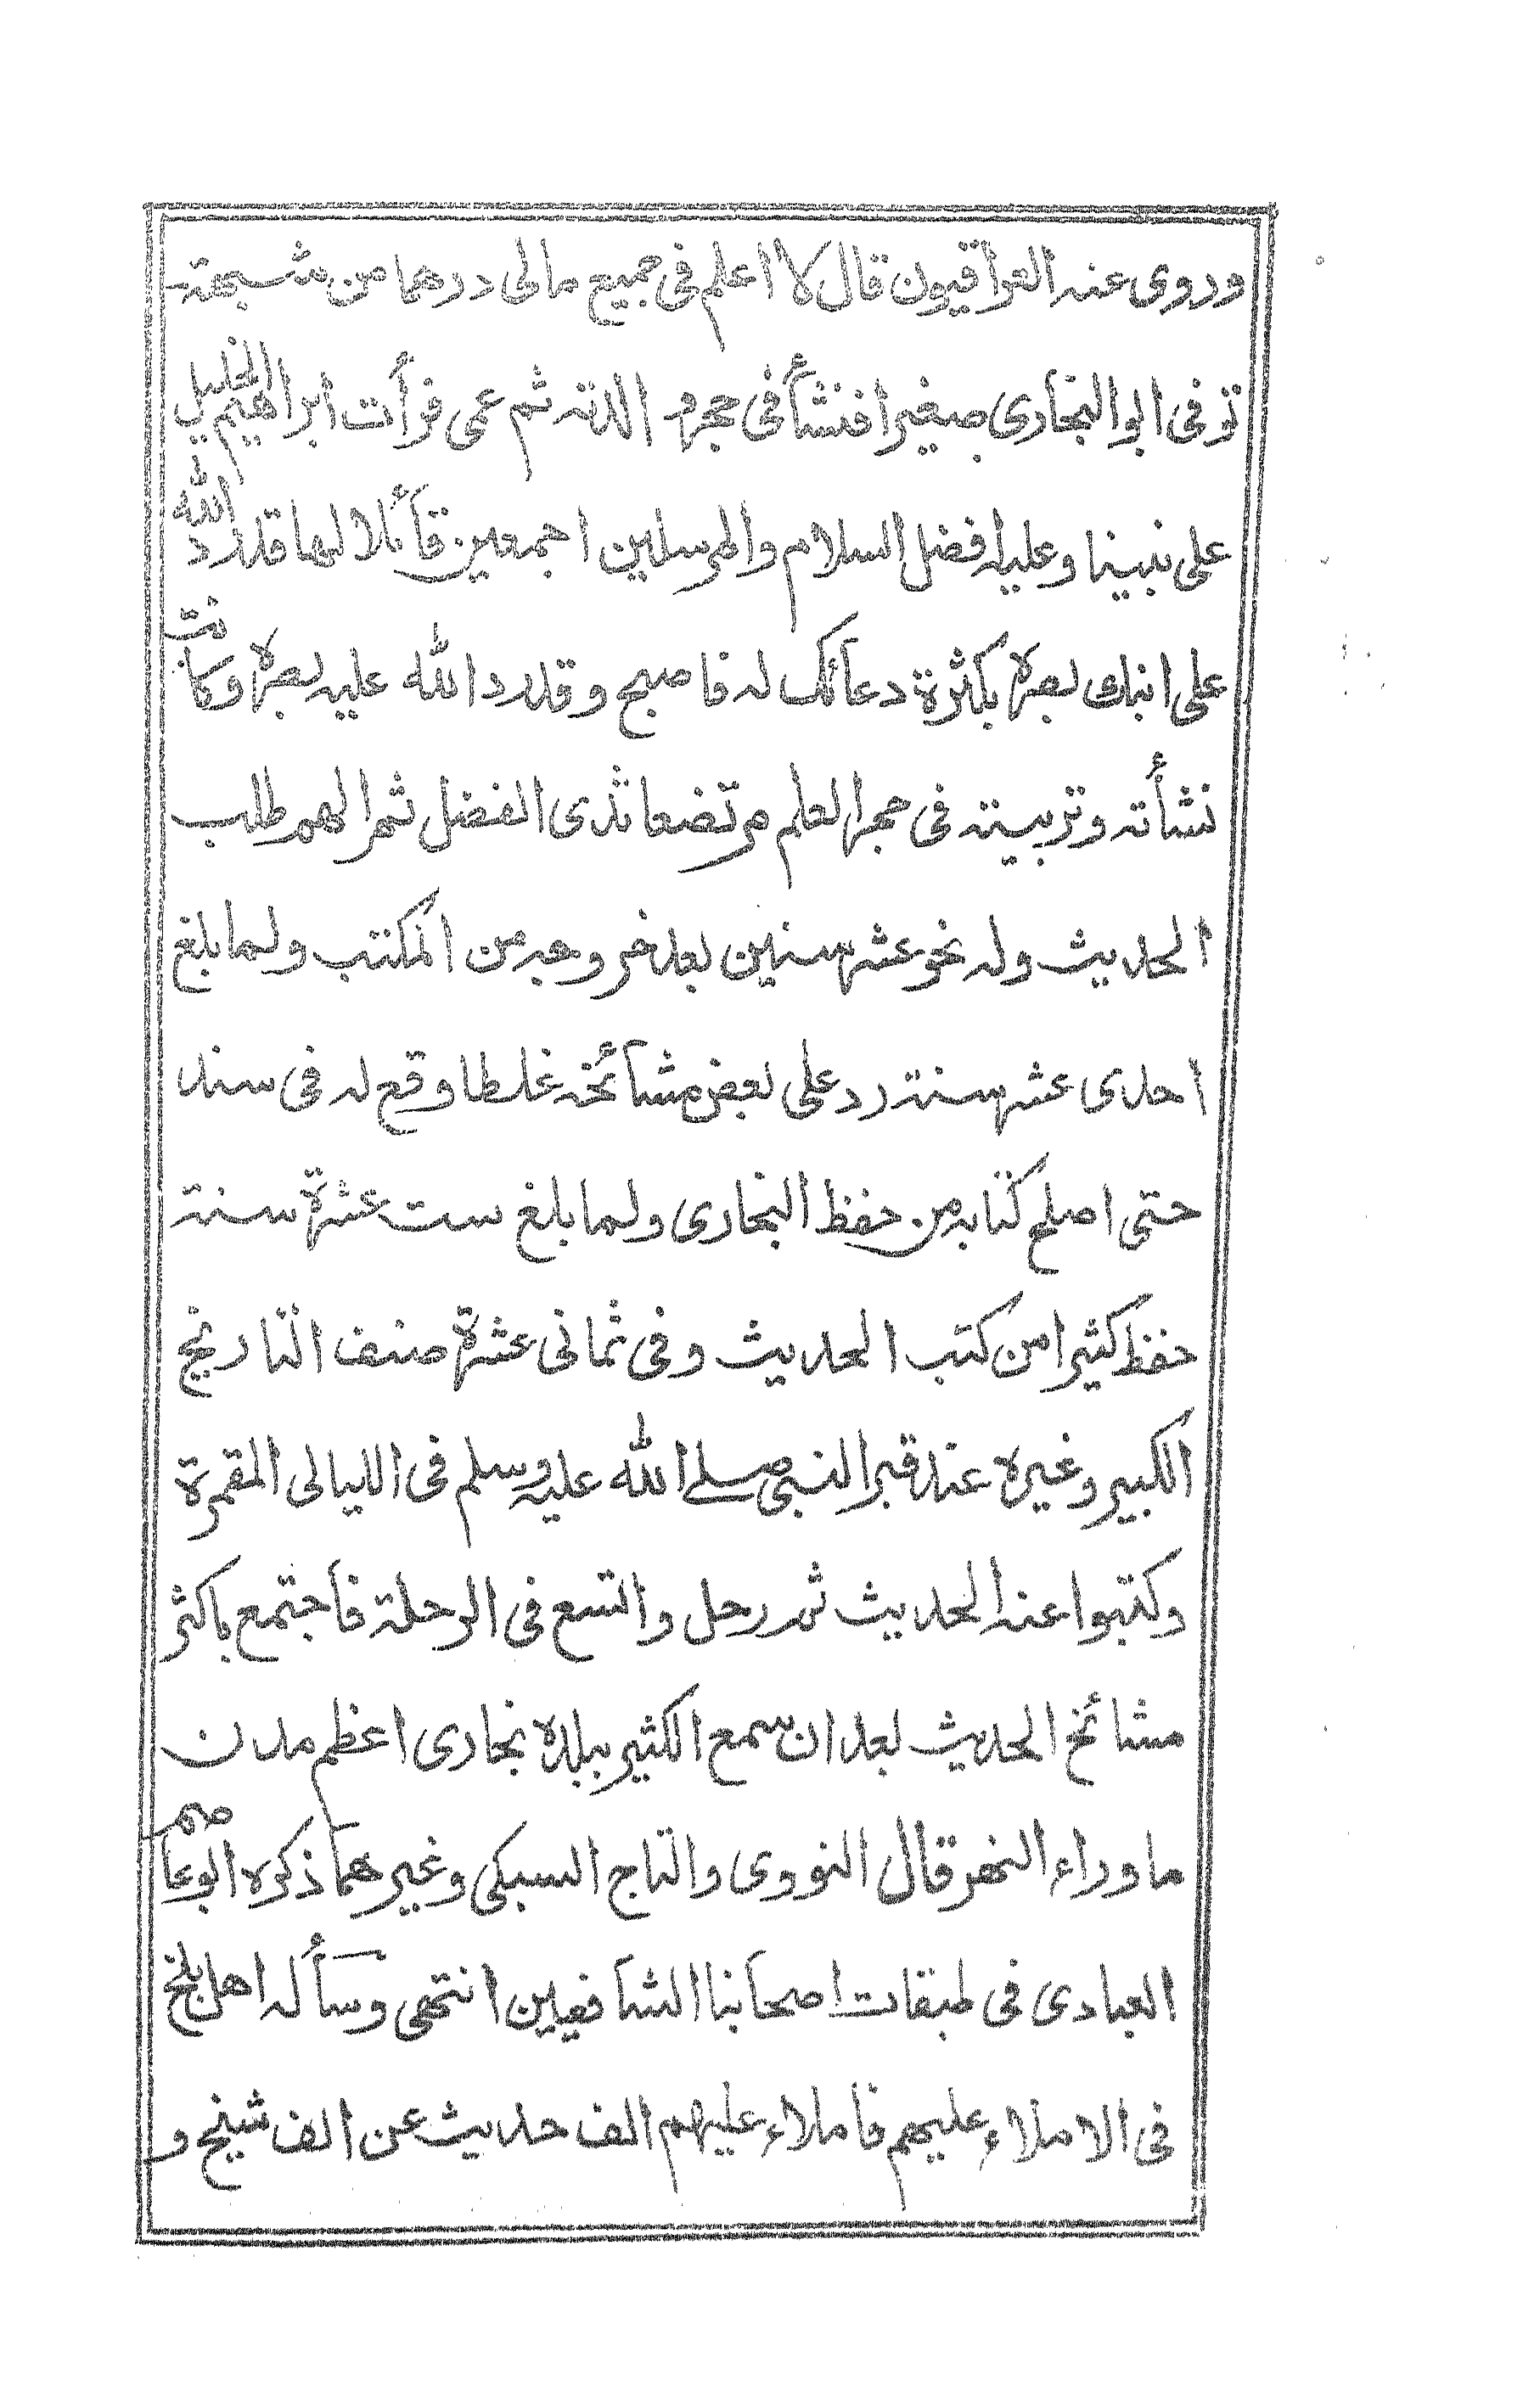 وروى عنه العراقيون قال لا اعلم فى جميع مالى درهما من شبهة
توفى ابو البخارى صغيرا فنشأ فى حجر والدته ثم عمى فرأت ابراهيم الخليل
على نبينا وعليه افضل السلام والمرسلين اجمعين قآئلا لها قد رد الله
على ابنك بصره بكثرة دعآئك له فاصبح وقد رد الله عليه بصره وكانت
نشأته وتربيته فى حجر العلم مرتضعا ثدى الفضل ثم الهم طلب
الحديث وله نحو عشر سنين بعد خروجه من المكتب ولما بلغ
احدى عشر سنة رد على بعض مشآئخه غلطا وقع له فى سند
حتى اصلح كتابه من حفظ البخارى ولما بلغ ست عشرة سنة
حفظ كثيرا من كتب الحديث وفى ثمانى عشرة صنف التاريخ
الكبير وغيره عند قبر النبى صلے الله عليه وسلم فى الليالى المقمرة
وكتبوا عنه الحديث ثم رحل واتسع فى الرحلة فآجتمع باكثر
مشائخ الحديث بعد ان سمع الكثير ببلده بخارى اعظم مدن
ما وراء النهر قال النووى والتاج السبكى وغيرهما ذكره ابو عاصم
العبادى فى طبقات اصحآبنا الشآفعيين انتهى وسأله اهل بلخ
فى الاملاء عليهم فاملاء عليهم الف حديث عن الف شيخ و